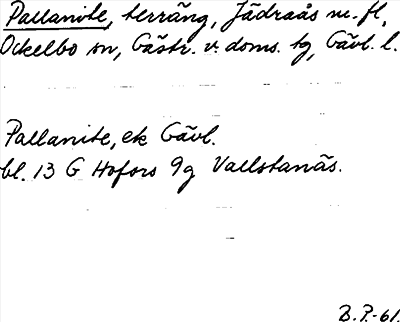 Pallanite, terräng, Jädraås m. fl,
Ockelbo sn, Gästr. v. doms. tg, Gävl. l.
Pallanite, ek Gävl.
bl. 13 G Hofors 9g Vallstanäs.
B.P.-61.